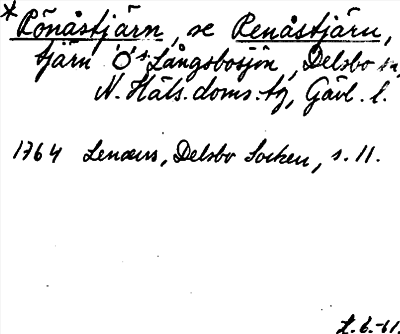 *Rönåstjärn, se Renåstjärn,
tjärn Ö Långsbosjön, Delsbo sn,
N. Häls. doms. tg, Gävl. l.
1764 Lenæus, Delsbo Socken, s. 11.
t.6.-61.